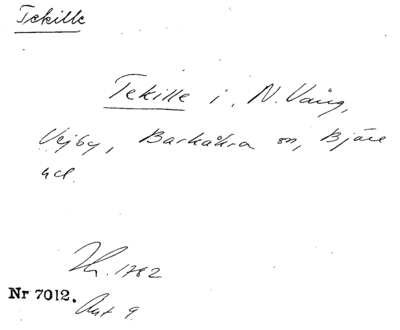 Tekille
Tekille i N. Vång,
Vejby, Barkåkra sn, Bjäre
hd.
1782
Nr 7012.
Akt 9